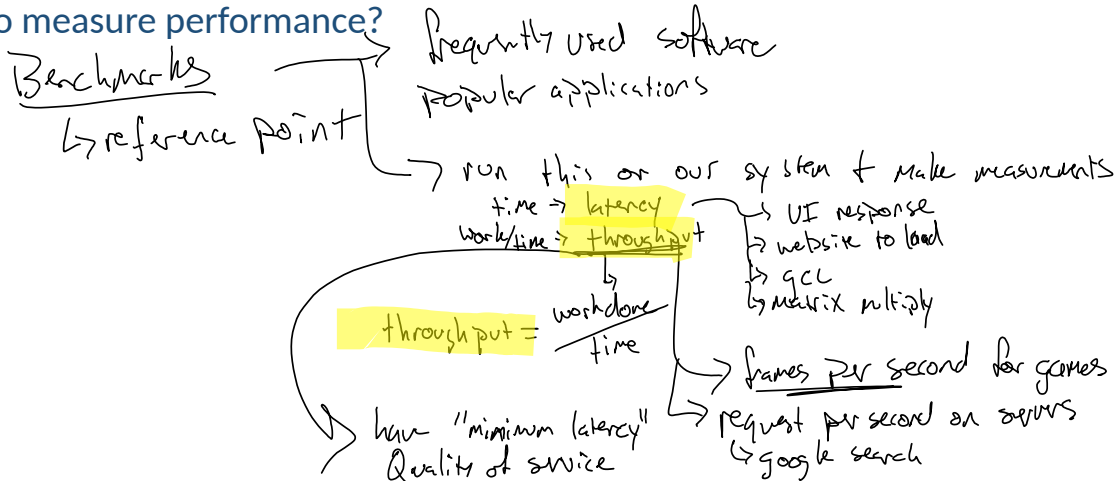 o measure performance?
Benchmarks
↳ reference point
frequently used software
popular applications
run this on our system & make measurements
time → latency
work/time → throughput
→ UI response
→ website to load
→ gcc
→ matrix multiply
throughput = work done / time
→ frames per second for games
→ request per second on servers
↳ google search
have "minimum latency"
Quality of service